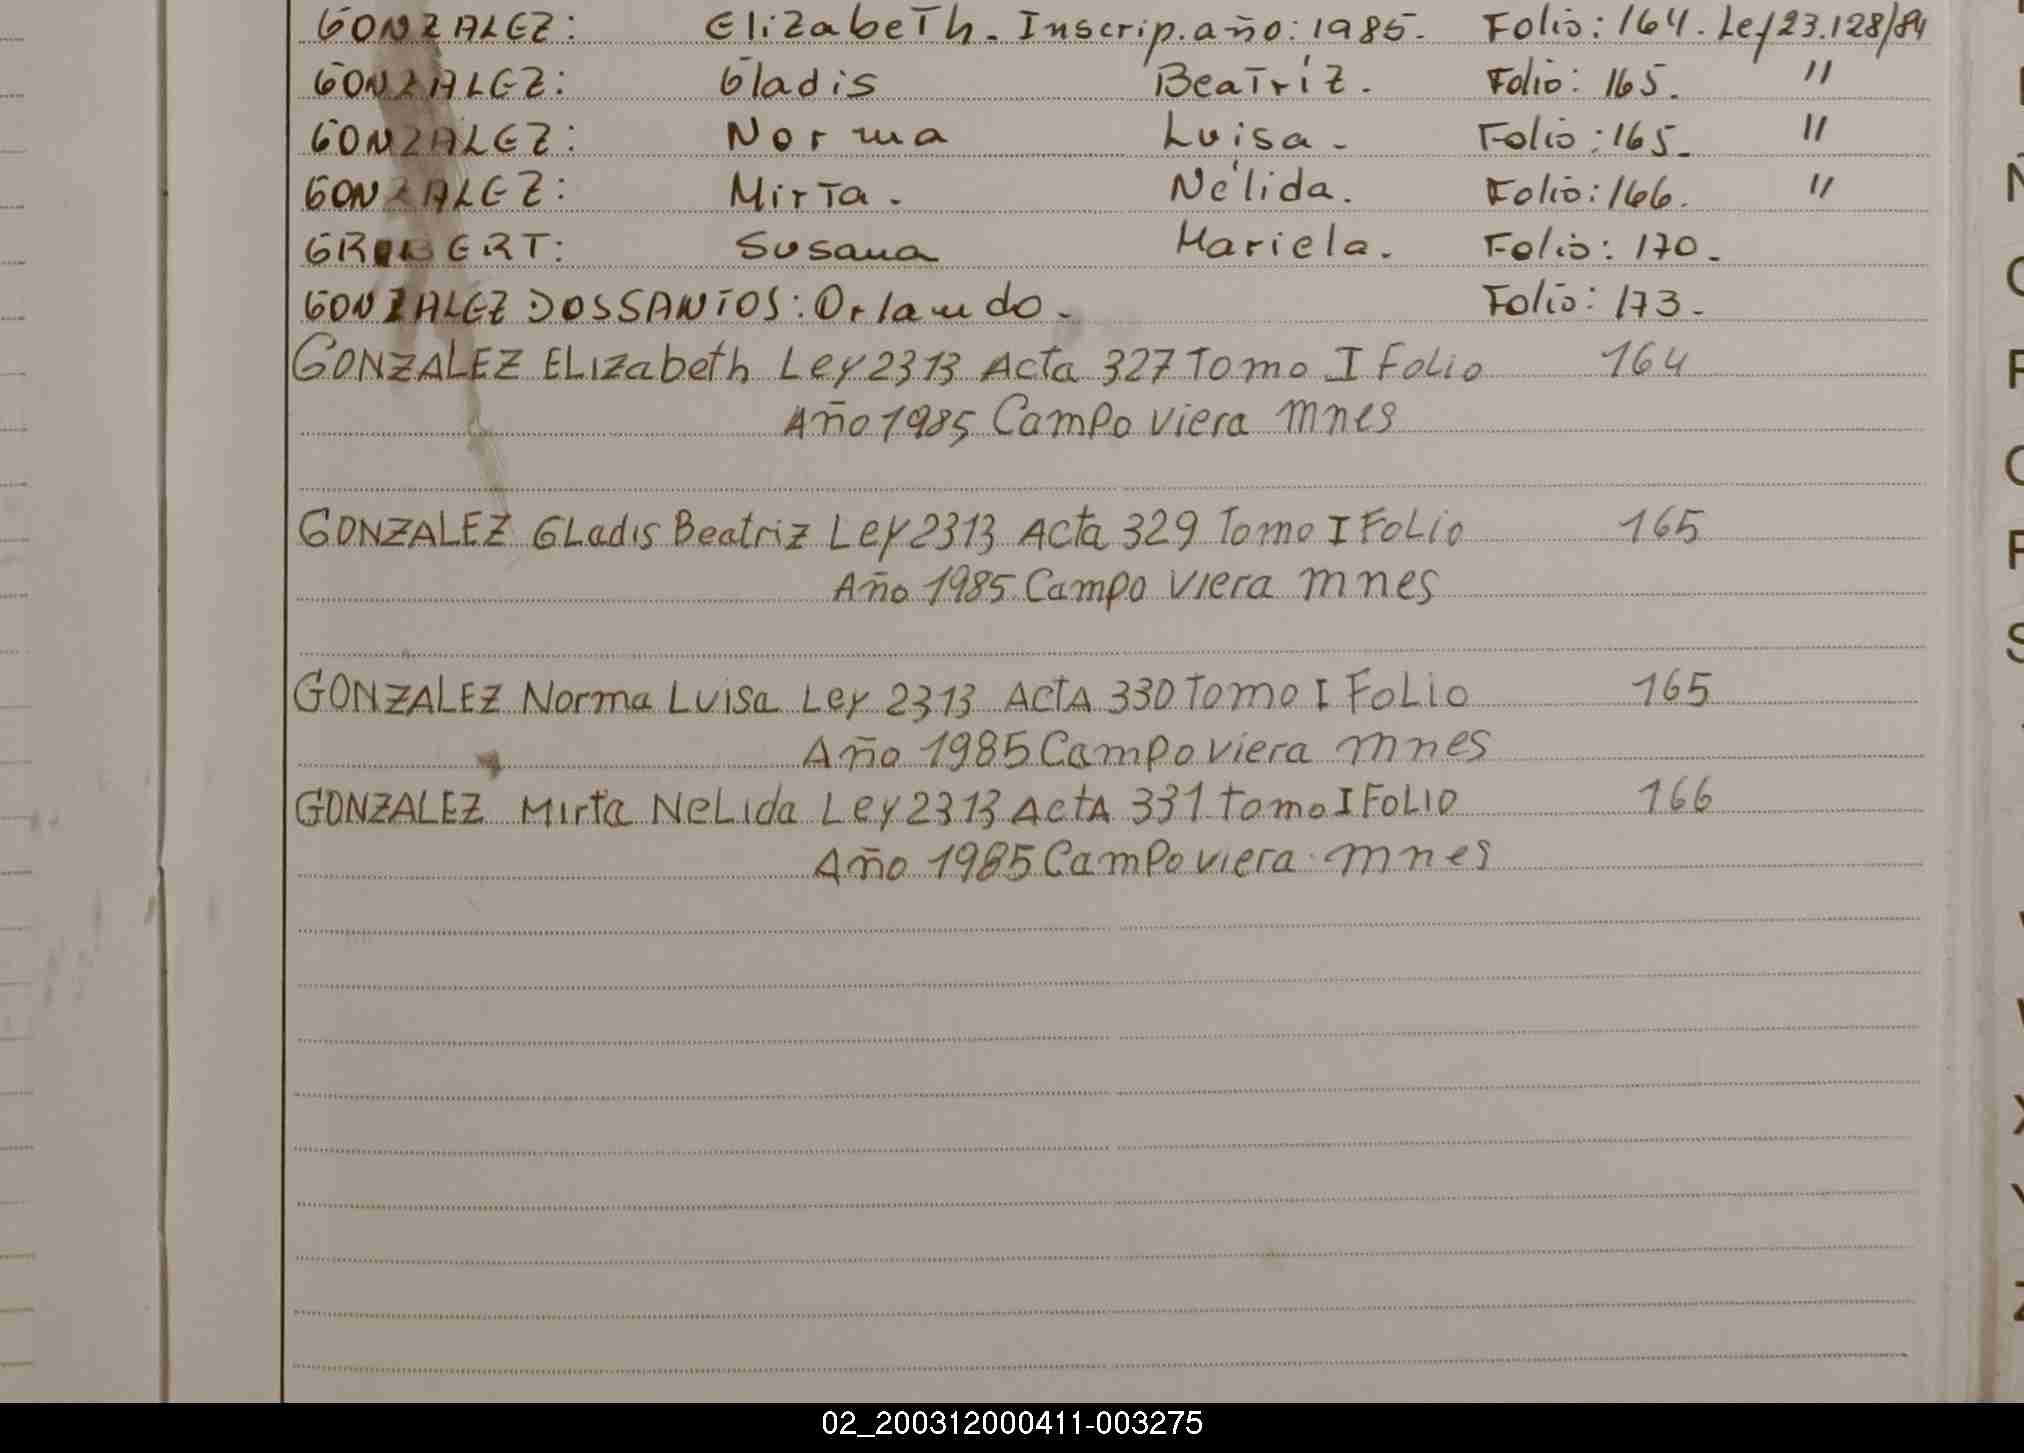 GONZALEZ: Elizabeth. Inscrip. año: 1985. Folio: 164. Ley 23.128/84
GONZALEZ: Gladis Beatríz. Folio: 165. "
GONZALEZ: Norma Luisa. Folio: 165. "
GONZALEZ: Mirta. Nélida. Folio: 166. "
Susana Mariela. Folio: 170.
GONZALEZ DOSSANTOS: Orlando. Folio: 173.
GONZALEZ ELizabeth Ley 2313 Acta 327 Tomo I Folio 164
Año 1985 Campo viera mnes
GONZALEZ GLadis Beatriz Ley 2313 Acta 329 Tomo I FoLio 165
Año 1985 Campo viera mnes
GONZALEZ Norma Luisa Ley 2313 ACTA 330 Tomo I FoLio 165
Año 1985 Campo viera mnes
GONZALEZ Mirta NeLida Ley 2313 ActA 331 tomo I FOLIO 166
Año 1985 Campo viera mnes
02_200312000411-003275